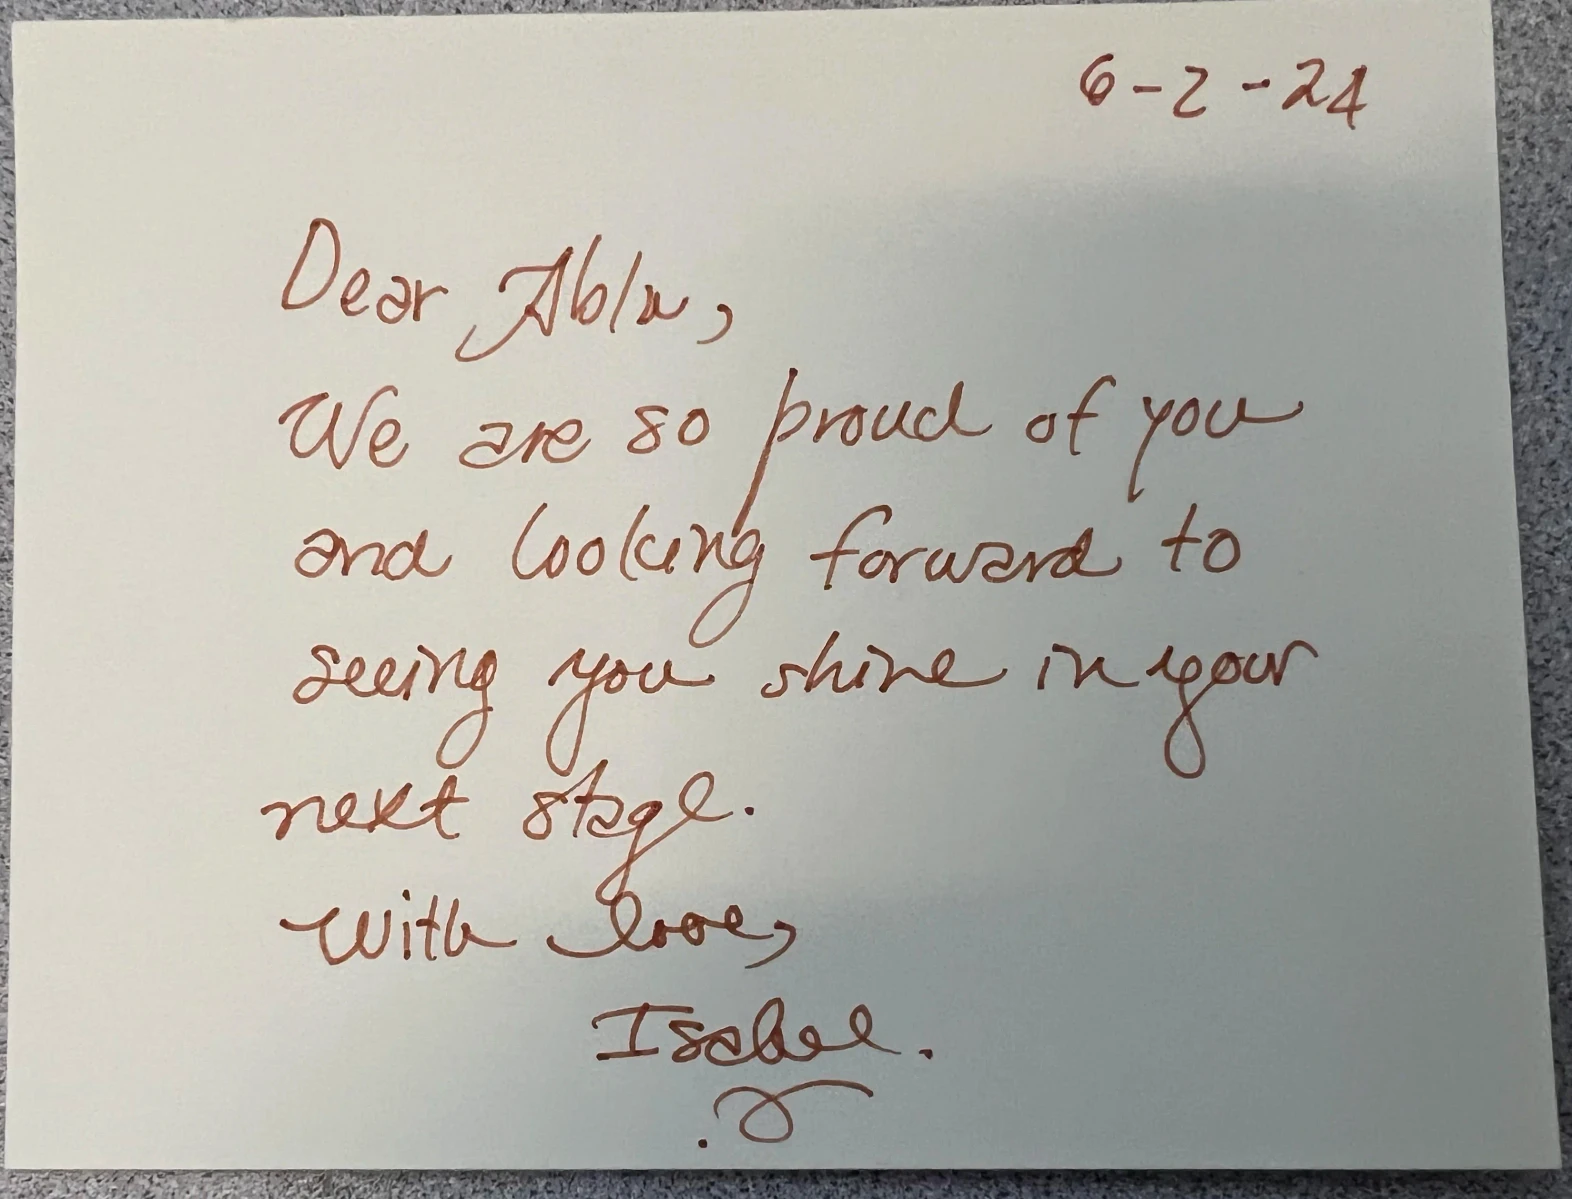 6-2-24
Dear Abla,
We are so proud of you
and looking forward to
seeing you shine in your
next stage.
With love,
Isabel.